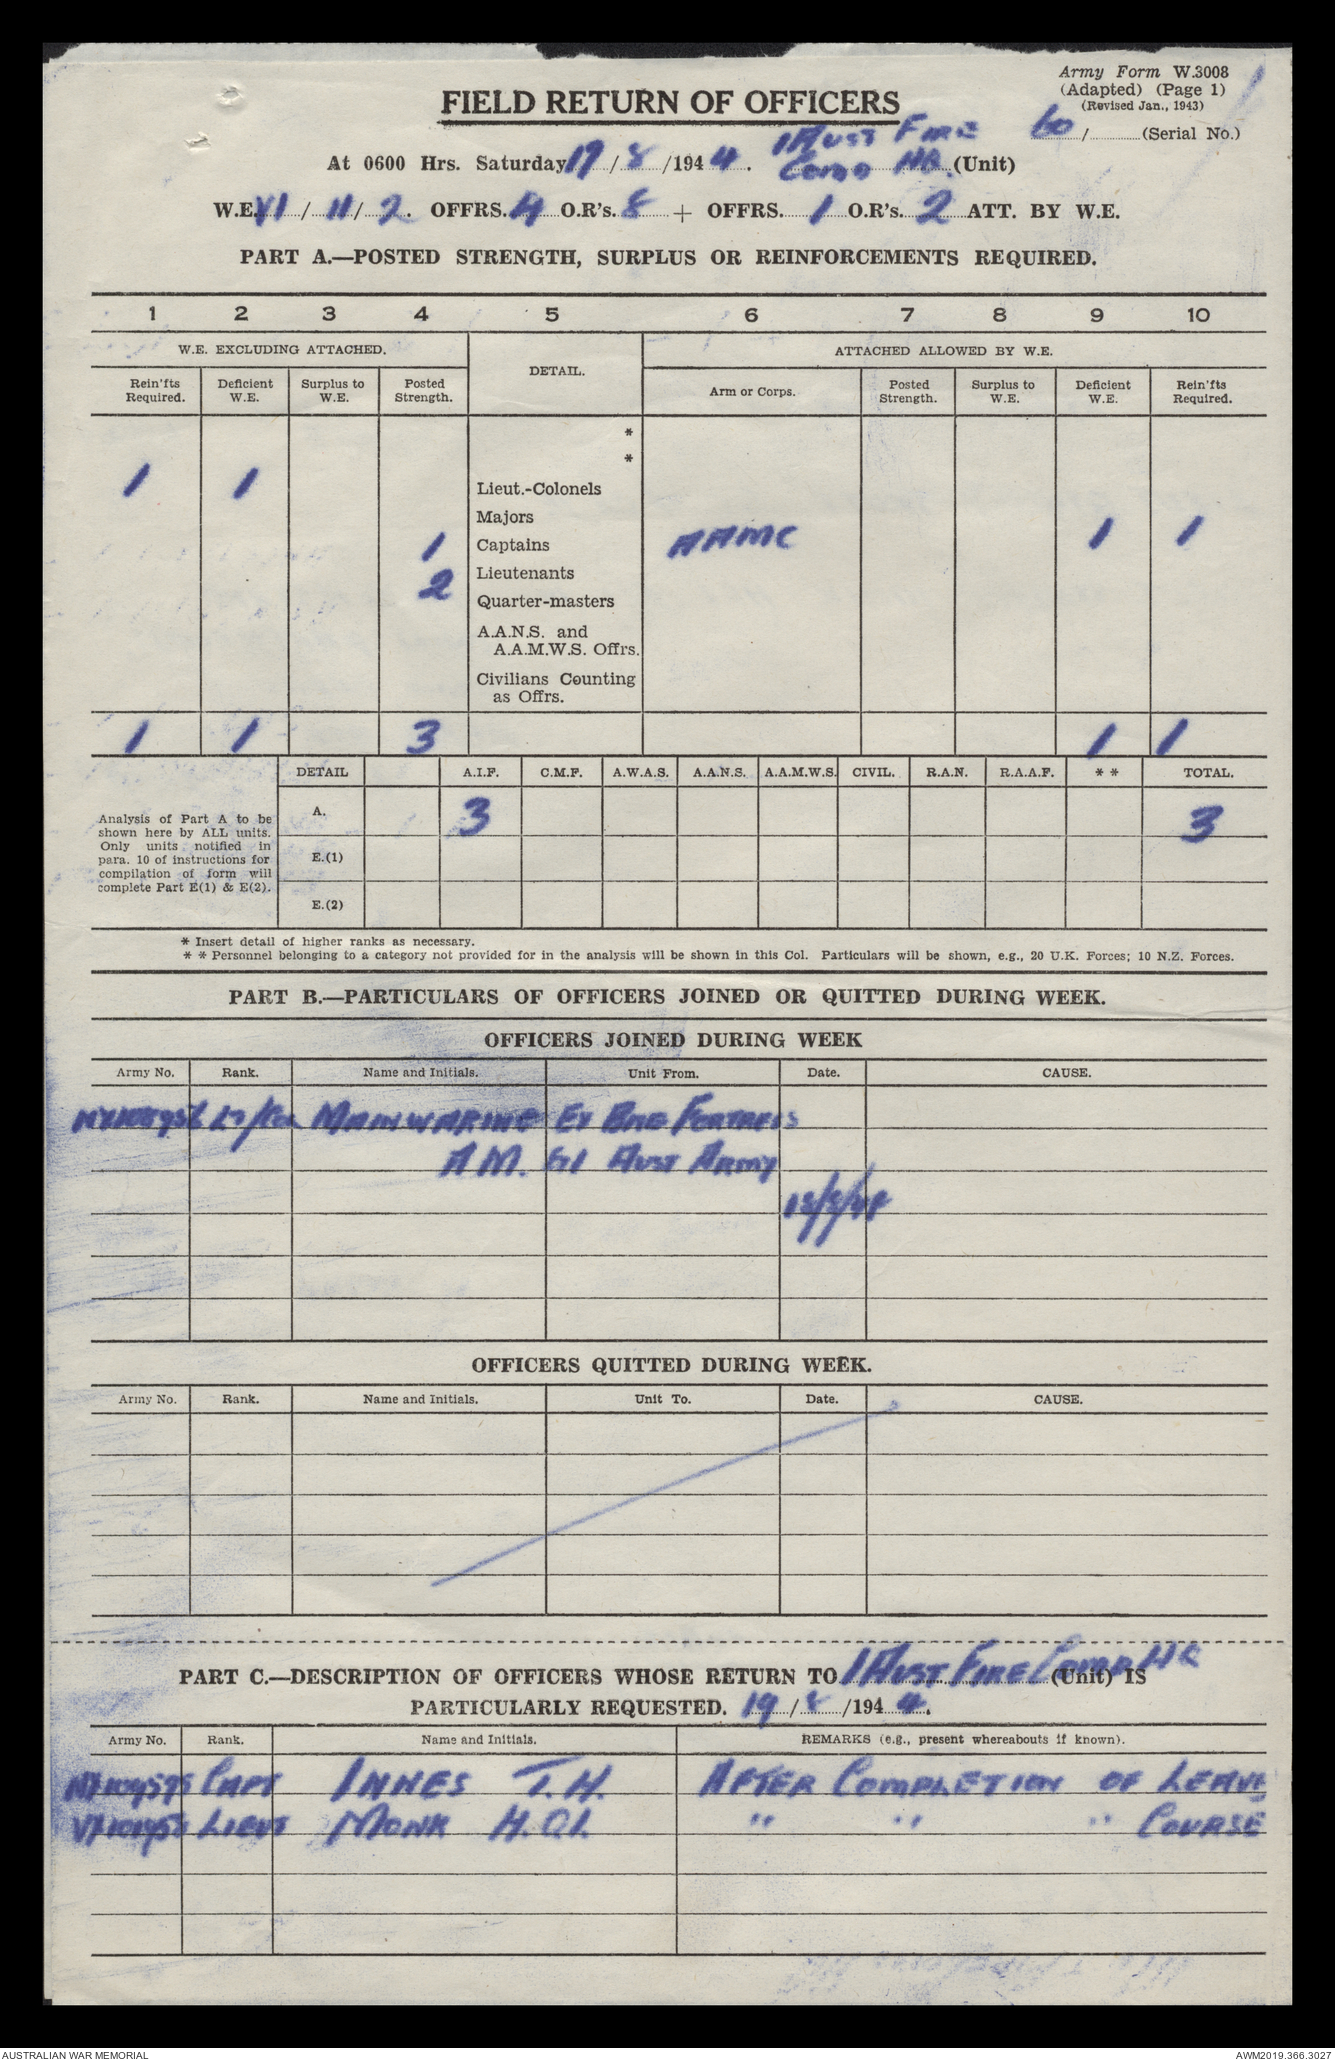 Army Form W.3008
(Adapted) (Page 1)
(Revised Jan., 1943)
FIELD RETURN OF OFFICERS
60 / (Serial No.)
At 0600 Hrs. Saturday 19 / 8 /194 4. 1 Aust Fire Comd HQ. (Unit)
W.E. VI / 11 / 2. OFFRS. 4 O.R's. 8 + OFFRS. 1 O.R's. 2 ATT. BY W.E.
PART A.—POSTED STRENGTH, SURPLUS OR REINFORCEMENTS REQUIRED.
1 2 3 4 5 6 7 8 9 10
W.E. EXCLUDING ATTACHED. DETAIL. ATTACHED ALLOWED BY W.E.
Rein'fts Required. Deficient W.E. Surplus to W.E. Posted Strength. Arm or Corps. Posted Strength. Surplus to W.E. Deficient W.E. Rein'fts Required.
*
*
1 1 Lieut.-Colonels
Majors
1 Captains AAMC 1 1
2 Lieutenants
Quarter-masters
A.A.N.S. and
A.A.M.W.S. Offrs.
Civilians Counting
as Offrs.
1 1 3 1 1
DETAIL A.I.F. C.M.F. A.W.A.S. A.A.N.S. A.A.M.W.S. CIVIL. R.A.N. R.A.A.F. * * TOTAL.
Analysis of Part A to be
shown here by ALL units.
Only units notified in
para. 10 of instructions for
compilation of form will
complete Part E(1) & E(2).
A. 3 3
E.(1)
E.(2)
* Insert detail of higher ranks as necessary.
* * Personnel belonging to a category not provided for in the analysis will be shown in this Col. Particulars will be shown, e.g., 20 U.K. Forces; 10 N.Z. Forces.
PART B.—PARTICULARS OF OFFICERS JOINED OR QUITTED DURING WEEK.
OFFICERS JOINED DURING WEEK
Army No. Rank. Name and Initials. Unit From. Date. CAUSE.
Lt/Col Mainwaring Ex Bde Fortress
A M. Aust Army
18/8/44
OFFICERS QUITTED DURING WEEK.
Army No. Rank. Name and Initials. Unit To. Date. CAUSE.
PART C.—DESCRIPTION OF OFFICERS WHOSE RETURN TO 1 Aust Fire Comd HQ (Unit) IS
PARTICULARLY REQUESTED. 19 / 8 /194 4.
Army No. Rank. Name and Initials. REMARKS (e.g., present whereabouts if known).
Capt Innes T.H. After Completion of Leave
Lieut Monk H.O.I. " " " Course
AUSTRALIAN WAR MEMORIAL AWM2019.366.3027